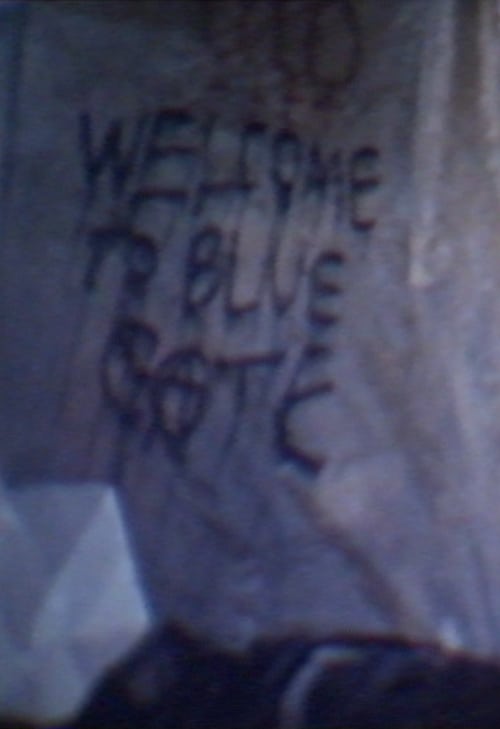 WELCOME
TO BLUE
GATE